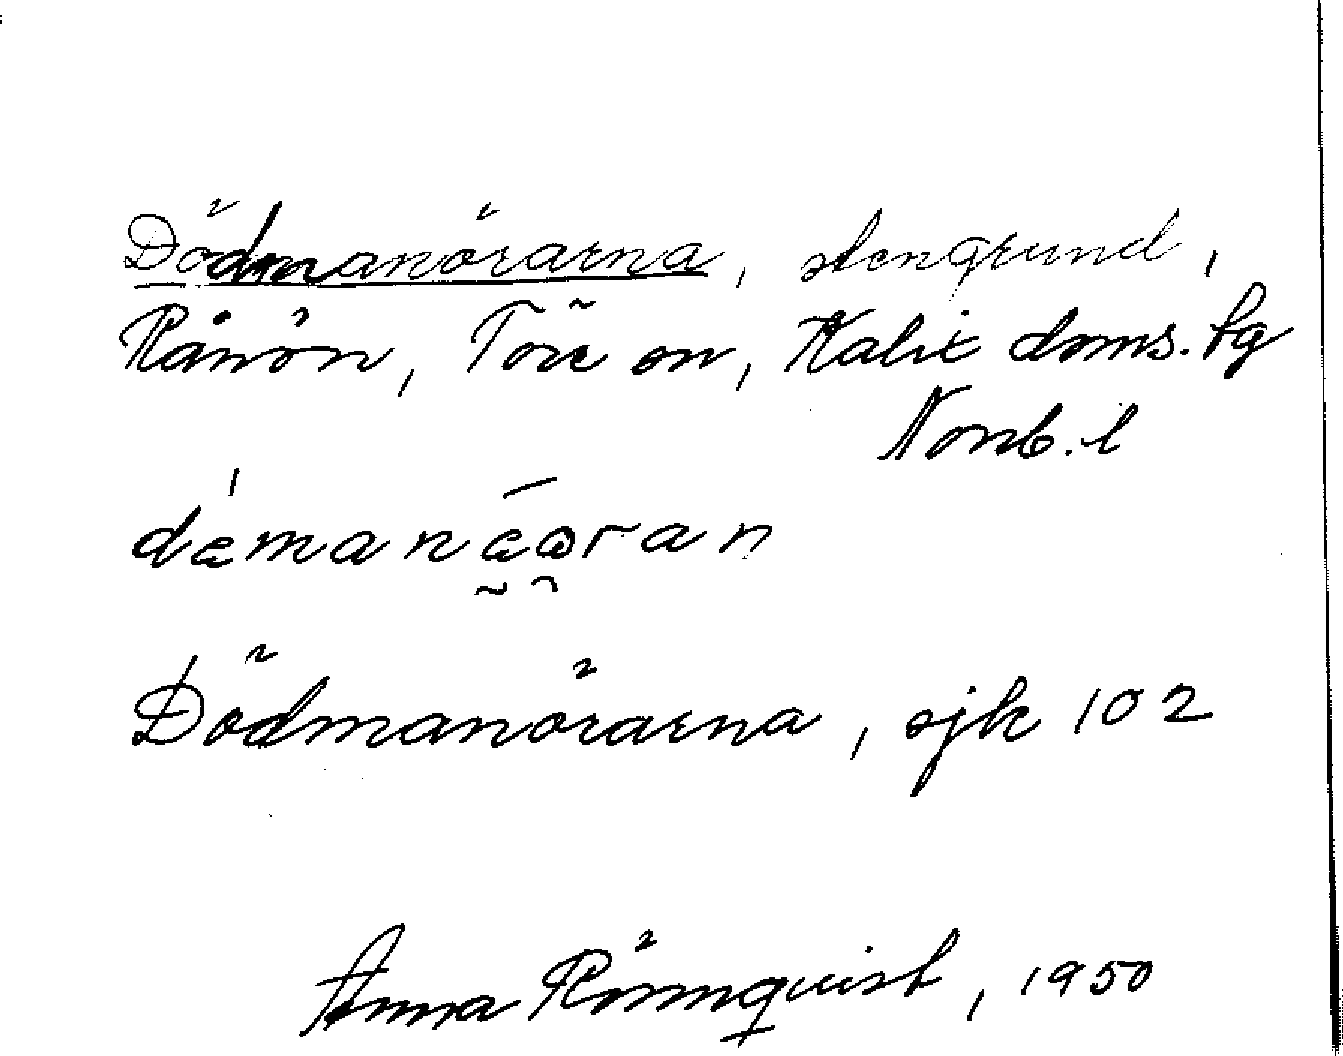 Dödmanörarna, stengrund,
Rånön, Töre sn, Kalix doms. fg
Norrb. l
Dödmanörarna, sjk 102
Anna Rönnquist, 1950